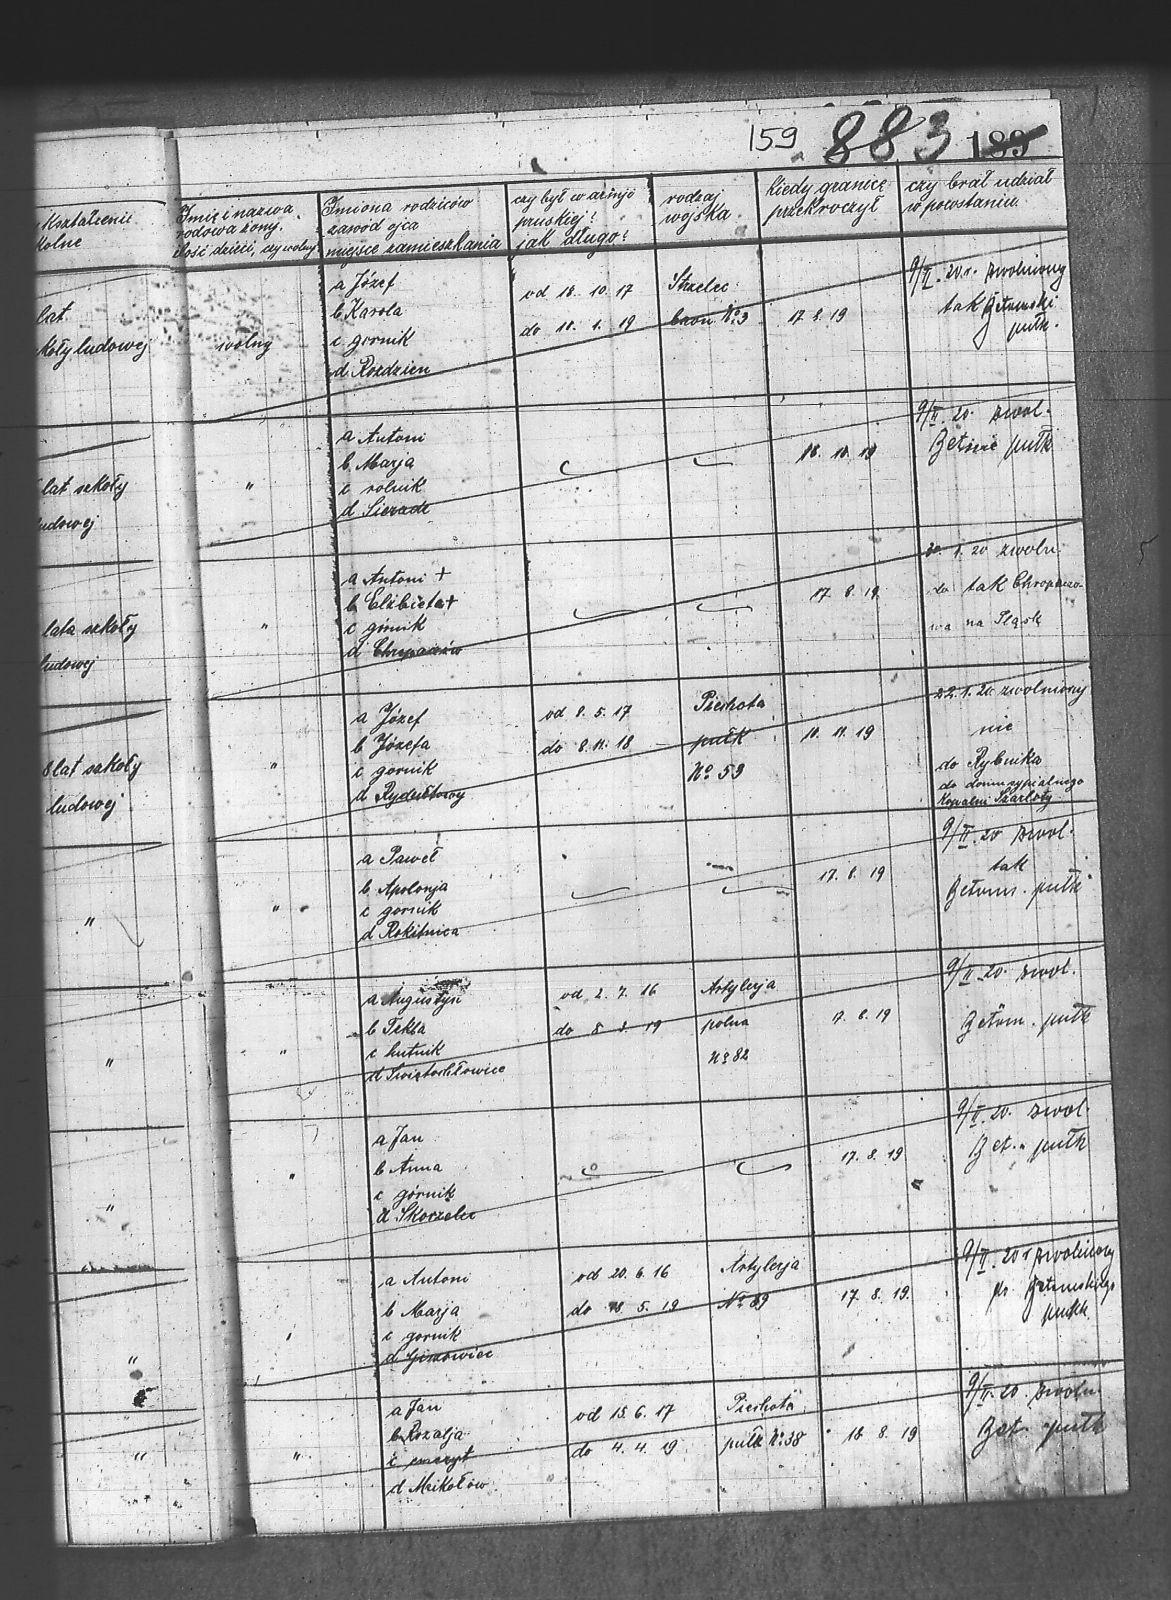 159 883 189
kształcenie
kolne
Imię i nazwa
rodowa żony.
ilość dzieci, czy wolny
Imiona rodziców
zawód ojca
miejsce zamieszkania
czy był w armji
pruskiej?
jak długo?
rodzaj
wojska
kiedy granicę
przekroczył
czy brał udział
w powstaniu
lat
koły ludowej
wolny
a Józef
b Karola
c gornik
d Rozdzien
od 18. 10. 17
do 10. 1. 19
Strzelec
baon No 3
17. 8. 19
9/II. 20 r. zwolniony
tak Bytomski
pułk.
lat szkoły
ludowej
"
a Antoni
b Marja
c rolnik
d Sierade
18. 10. 19
9/II. 20. zwol.
pułk
lata szkoły
ludowej
"
a Antoni +
b Elżbieta +
c górnik
d Chropaczów
17. 8. 19
20. 1. 20 zwoln.
do tak Chropaczo-
wa na Śląsk
8 lat szkoły
ludowej
"
a Józef
b Józefa
c gornik
d Rydułtowy
od 8. 5. 17
do 8. 11. 18
Piechota
pułk
No 59
10. 11. 19
22. 1. 20 zwolniony
nie
do Rybnika
do domu sypialnego
Kopalni Szarloty
"
"
a Paweł
b Apolonja
c gornik
d Rokitnica
17. 8. 19
9/II. 20 zwol.
tak
Bytom. pułk
"
"
a Augustyn
b Tekla
c hutnik
d Świętochłowice
od 2. 7. 16
do 8. 3. 19
Artylerja
polna
No 82
17. 8. 19
9/II. 20. zwol.
Bytom. pułk
"
"
a Jan
b Anna
c górnik
d Skorzelec
17. 8. 19
9/II. 20. zwol.
Byt. pułk
"
"
a Antoni
b Marja
c gornik
d Giszowiec
od 20. 6. 16
do 18. 5. 19
Artylerja
No 89
17. 8. 19.
9/II. 20 r zwolniony
Bytomskiego
pułk
"
"
a Jan
b Rozalja
c emeryt
d Mikołów
od 15. 6. 17
do 4. 4. 19
Piechota
pułk No 38
18. 8. 19
9/II. 20. zwoln.
Byt. pułk